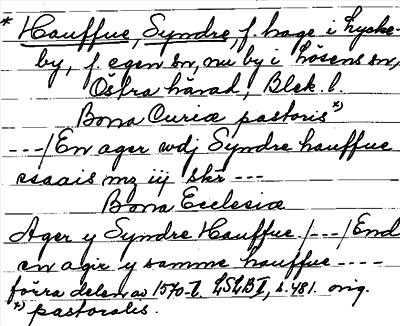 * Hauffue, Syndre, f. hage i Lyske-
by, f. egen sn, nu by i Lösens sn,
Östra härad, Blek. l.
Bona Curiæ pastoris *)
---/En ager wdj Syndre hauffue
csaais mz iij skr ---
Bona Ecclesiæ
Ager y Syndre Hauffue. /---/ End
en agir y samme hauffue ----
förra delen av 1570-t. LSLB I, s. 481. orig.
*) pastoralis.